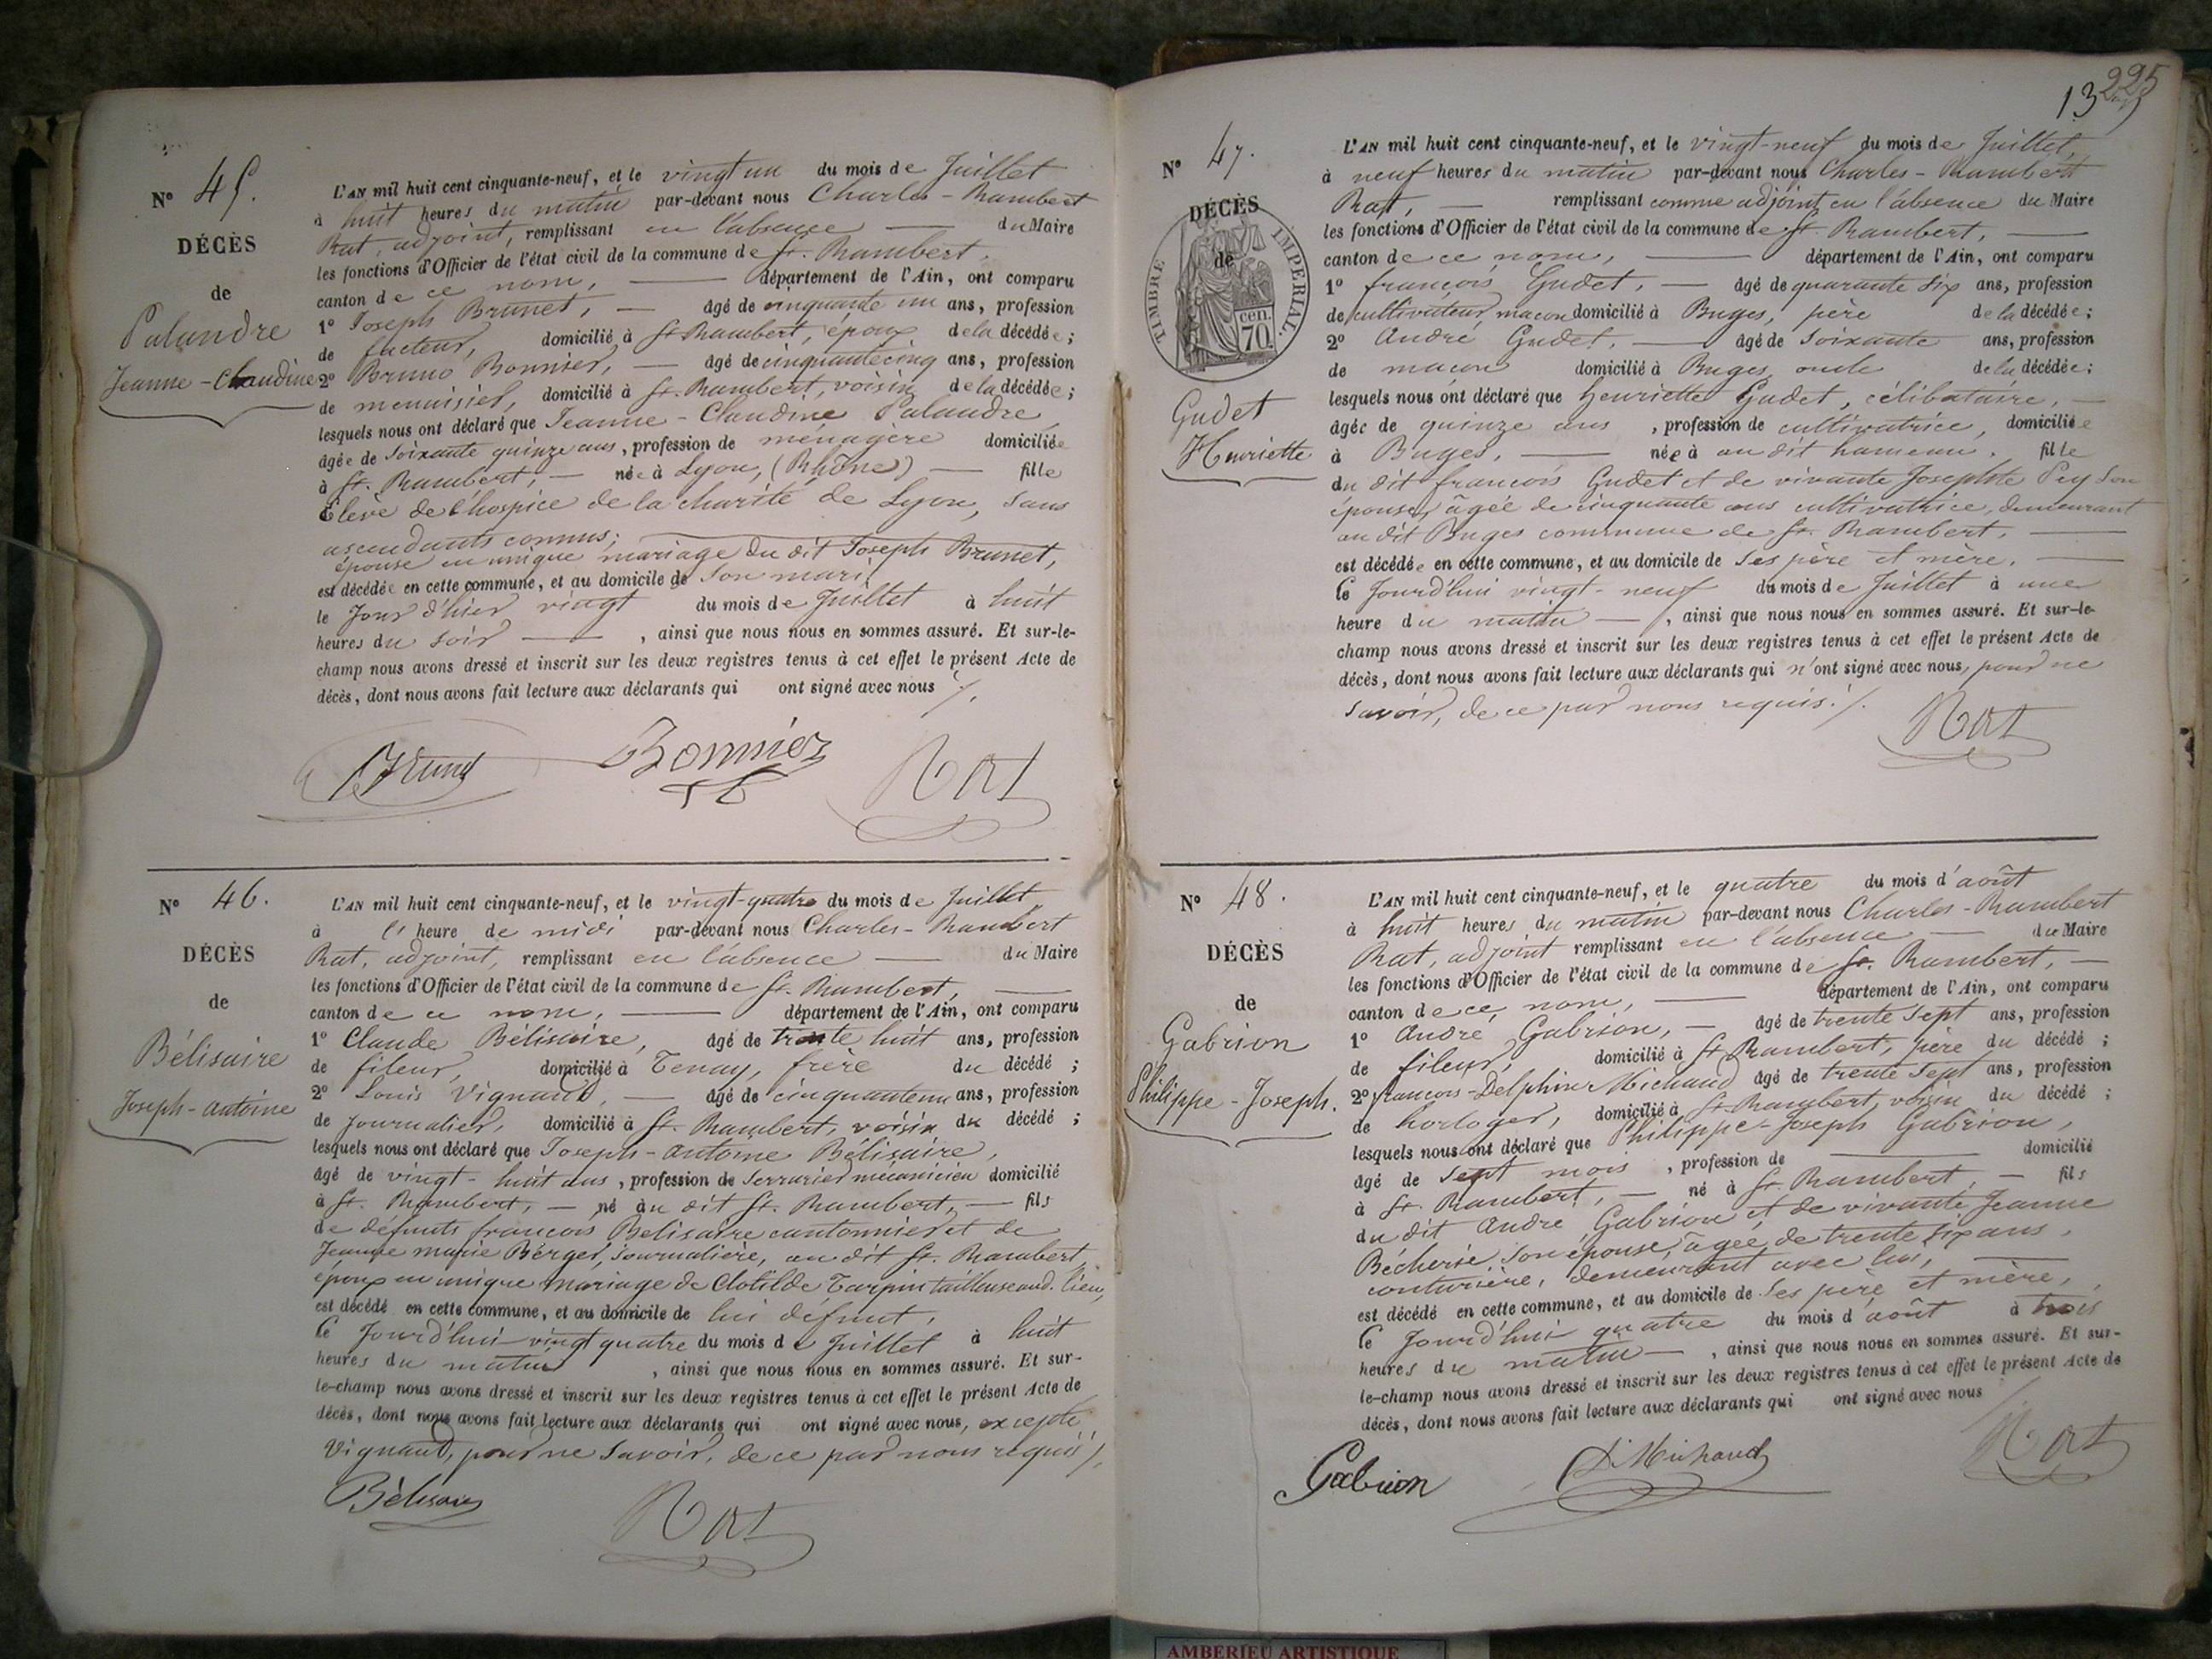 N° 45.
DÉCÈS
de
Palandre
Jeanne-Claudine
L'AN mil huit cent cinquante-neuf, et le vingt un du mois de Juillet
à huit heures du matin par-devant nous Charles-Rambert
Rat, adjoint, remplissant en l'absence du Maire
les fonctions d'Officier de l'état civil de la commune de St. Rambert,
canton de ce nom, département de l'Ain, ont comparu
1° Joseph Brunet, âgé de cinquante un ans, profession
de facteur, domicilié à St Rambert, époux de la décédée;
2° Bruno Bonnier, âgé de cinquante cinq ans, profession
de menuisier, domicilié à St. Rambert, voisin de la décédée;
lesquels nous ont déclaré que Jeanne-Claudine Palandre
âgée de soixante quinze ans, profession de ménagère domiciliée
à St. Rambert, née à Lyon, (Rhône) fille
Élève de l'hospice de la charité de Lyon, sans
ascendants connus;
épouse en unique mariage du dit Joseph Brunet,
est décédée en cette commune, et au domicile de son mari,
le jour d'hier vingt du mois de Juillet à huit
heures du soir, ainsi que nous nous en sommes assuré. Et sur-le-
champ nous avons dressé et inscrit sur les deux registres tenus à cet effet le présent Acte de
décès, dont nous avons fait lecture aux déclarants qui ont signé avec nous ./.
Brunet Bonnier Rat
N° 46.
DÉCÈS
de
Bélisaire
Joseph-antoine
L'AN mil huit cent cinquante-neuf, et le vingt-quatre du mois de Juillet,
à l' heure de midi par-devant nous Charles-Rambert
Rat, adjoint, remplissant en l'absence du Maire
les fonctions d'Officier de l'état civil de la commune de St. Rambert,
canton de ce nom, département de l'Ain, ont comparu
1° Claude Bélisaire, âgé de trente huit ans, profession
de fileur, domicilié à Tenay, frère du décédé ;
2° Louis Vignaud, âgé de cinquante un ans, profession
de journalier, domicilié à St. Rambert, voisin du décédé ;
lesquels nous ont déclaré que Joseph-antoine Bélisaire,
âgé de vingt-huit ans, profession de serrurier mécanicien domicilié
à St. Rambert, né au dit St. Rambert, fils
de défunts françois Belisaire cantonnier et de
Jeanne marie Berger, journalière, au dit St. Rambert,
époux en unique mariage de Clotilde Tarpin tailleuse aud. lieu,
est décédé en cette commune, et au domicile de lui défunt,
le jourd'hui vingt quatre du mois de Juillet à huit
heures du matin, ainsi que nous nous en sommes assuré. Et sur-
le-champ nous avons dressé et inscrit sur les deux registres tenus à cet effet le présent Acte de
décès, dont nous avons fait lecture aux déclarants qui ont signé avec nous, excepté
Vignaud, pour ne savoir, de ce par nous requis ./.
Bélisaire Rat
13 225
N° 47.
DÉCÈS
de
TIMBRE IMPERIAL.
70 cen.
Gudet
Henriette
L'AN mil huit cent cinquante-neuf, et le vingt-neuf du mois de Juillet,
à neuf heures du matin par-devant nous Charles-Rambert
Rat, remplissant comme adjoint en l'absence du Maire
les fonctions d'Officier de l'état civil de la commune de St. Rambert,
canton de ce nom, département de l'Ain, ont comparu
1° françois Gudet, âgé de quarante six ans, profession
de cultivateur maçon domicilié à Buges, père de la décédée;
2° André Gudet, âgé de soixante ans, profession
de maçon domicilié à Buges, oncle de la décédée;
lesquels nous ont déclaré que henriette Gudet, célibataire,
âgée de quinze ans, profession de cultivatrice, domiciliée
à Buges, née à au dit hameau, fille
du dit françois Gudet et de vivante Josephte Pey son
épouse, âgée de cinquante ans cultivatrice, demeurant
au dit Buges commune de St. Rambert,
est décédée en cette commune, et au domicile de ses père et mère,
le jourd'hui vingt-neuf du mois de Juillet à une
heure du matin, ainsi que nous nous en sommes assuré. Et sur-le-
champ nous avons dressé et inscrit sur les deux registres tenus à cet effet le présent Acte de
décès, dont nous avons fait lecture aux déclarants qui n'ont signé avec nous, pour ne
savoir, de ce par nous requis ./.
Rat
N° 48.
DÉCÈS
de
Gabrion
Philippe-Joseph.
L'AN mil huit cent cinquante-neuf, et le quatre du mois d'août
à huit heures du matin par-devant nous Charles-Rambert
Rat, adjoint remplissant en l'absence du Maire
les fonctions d'Officier de l'état civil de la commune de St. Rambert,
canton de ce nom, département de l'Ain, ont comparu
1° André Gabrion, âgé de trente sept ans, profession
de fileur, domicilié à St. Rambert, père du décédé ;
2° françois-Delphin Michaud âgé de trente sept ans, profession
de horloger, domicilié à St. Rambert, voisin du décédé ;
lesquels nous ont déclaré que Philippe-Joseph Gabrion,
âgé de sept mois, profession de domicilié
à St. Rambert, né à St. Rambert, fils
du dit André Gabrion et de vivante Jeanne
Bécherie, son épouse, âgée de trente six ans,
couturière, demeurant avec lui,
est décédé en cette commune, et au domicile de ses père et mère,
le jourd'hui quatre du mois d'août à trois
heures du matin, ainsi que nous nous en sommes assuré. Et sur-
le-champ nous avons dressé et inscrit sur les deux registres tenus à cet effet le présent Acte de
décès, dont nous avons fait lecture aux déclarants qui ont signé avec nous
Gabrion D. Michaud Rat
AMBERIEU ARTISTIQUE